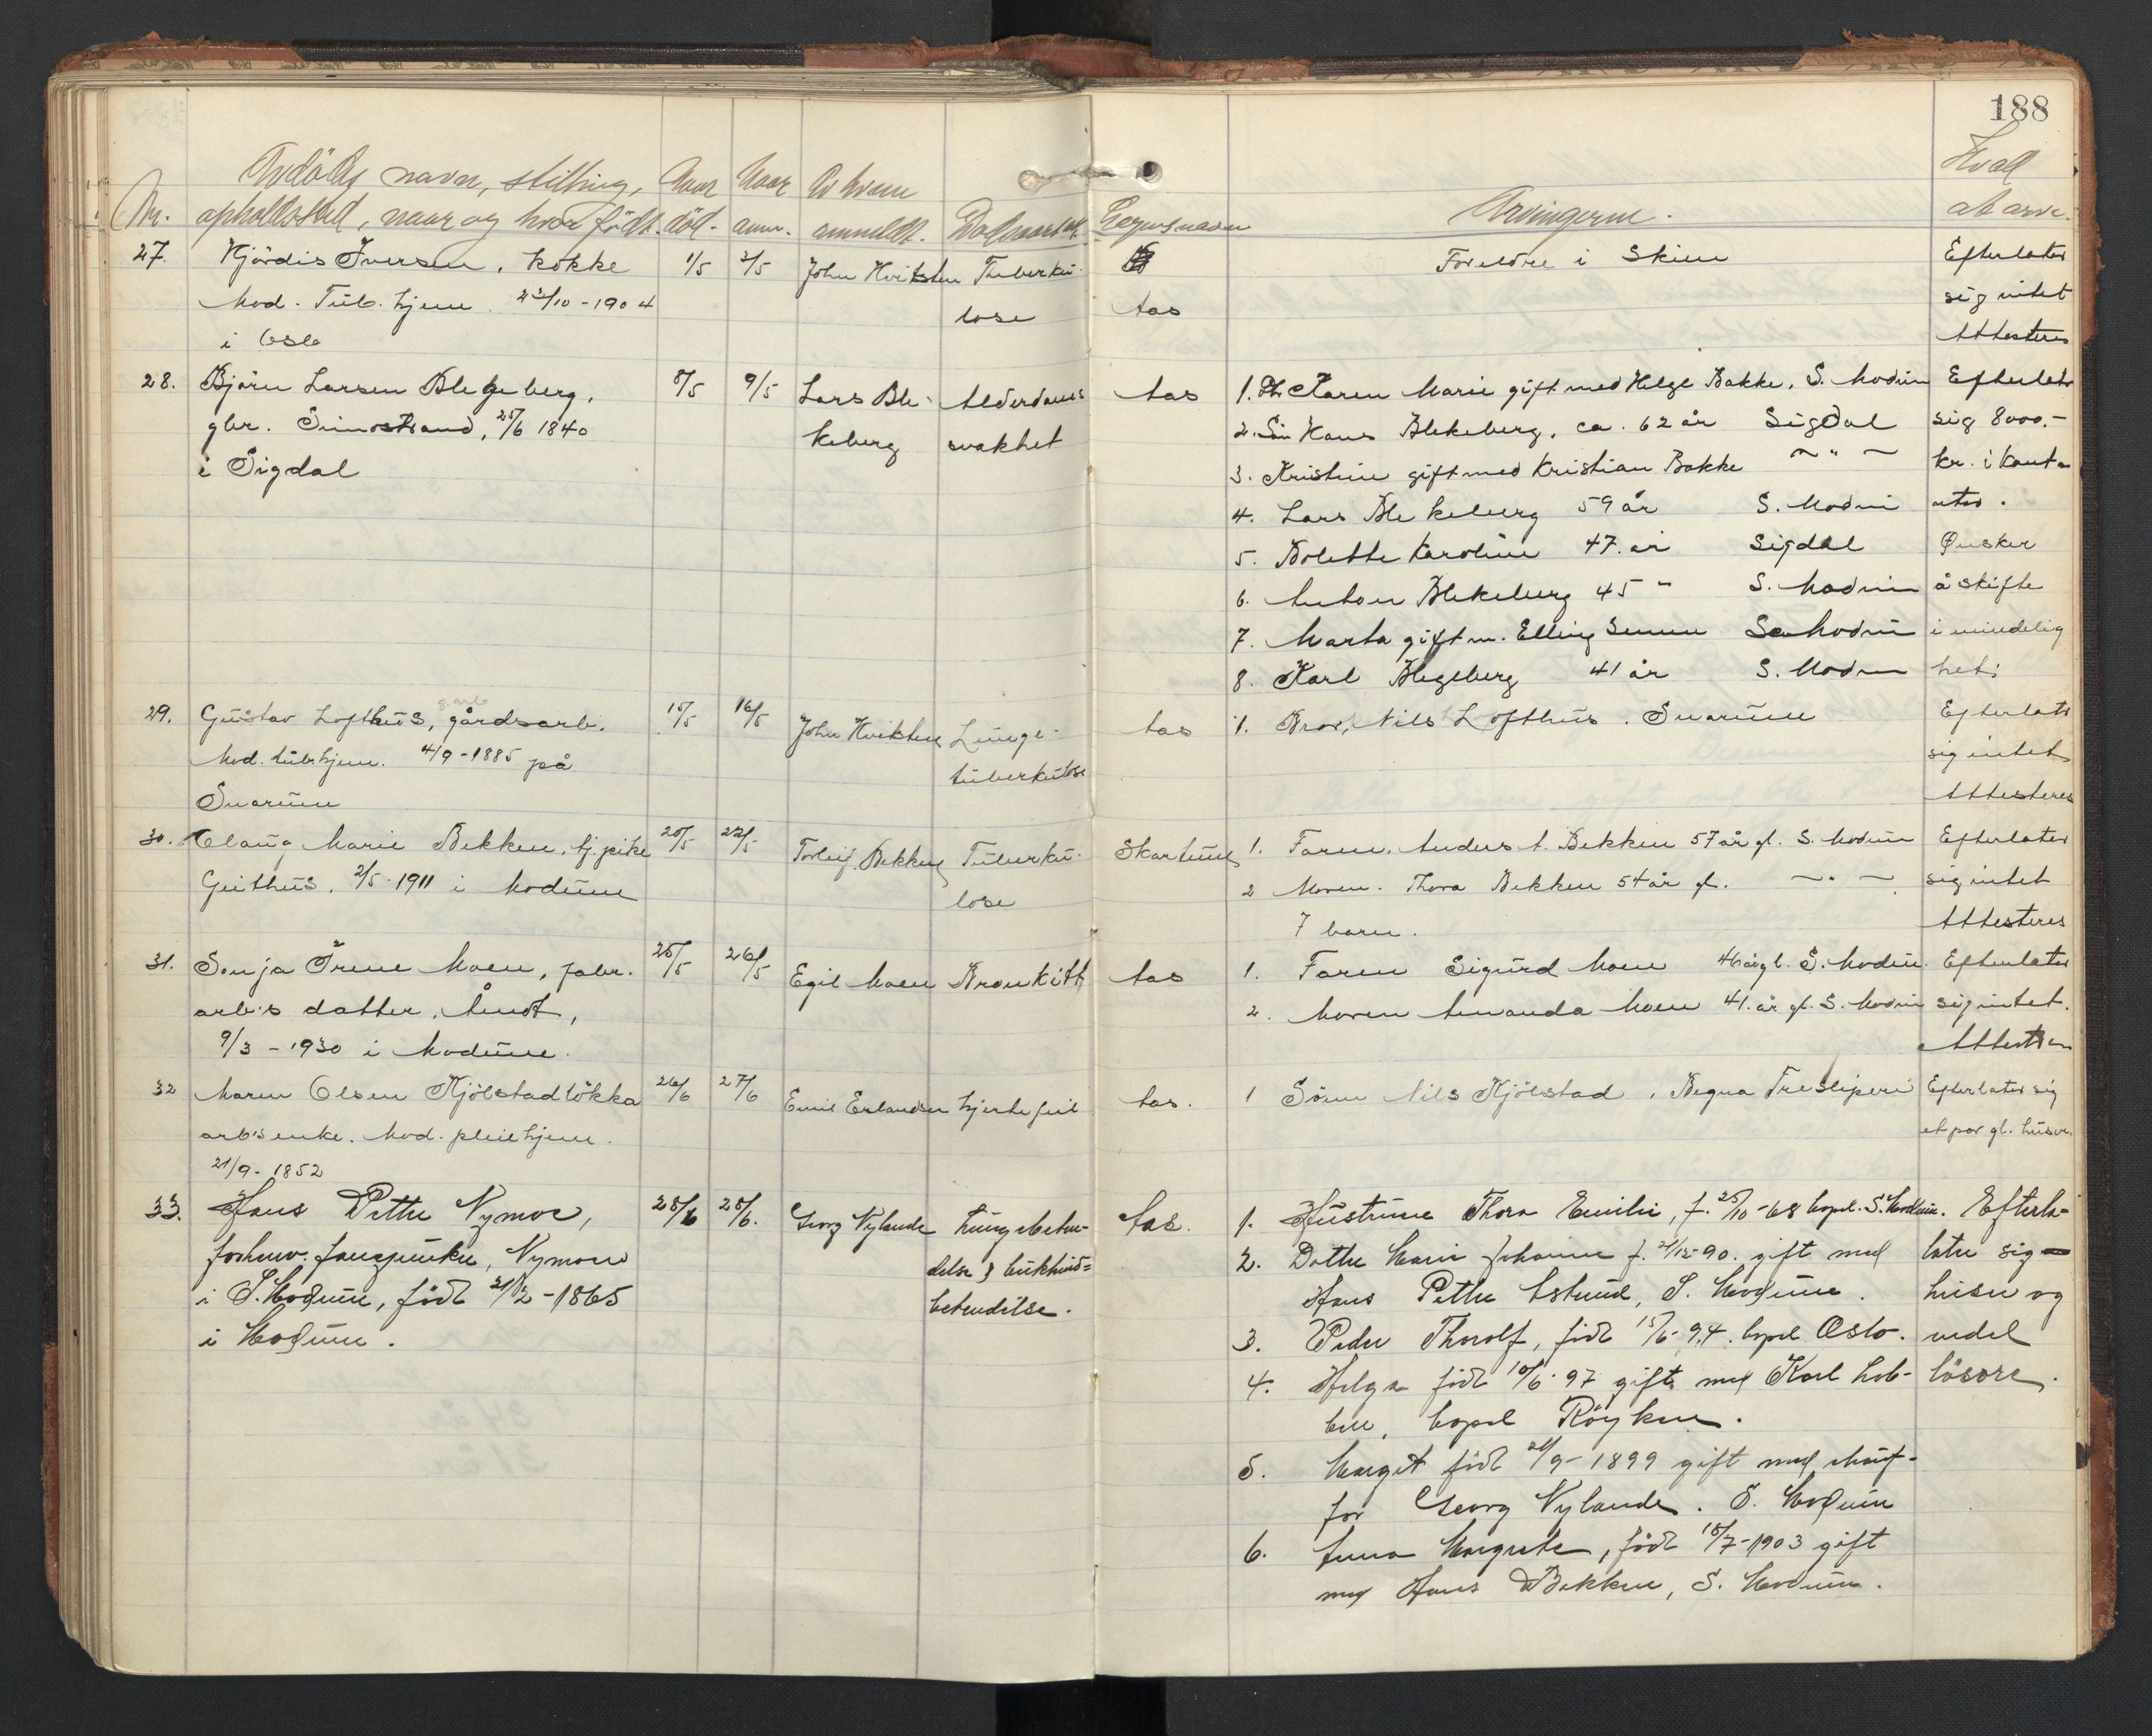 188
Avdödes navn, stilling, Naar Naar Av hvem Hvad
Nr. opholdssted, naar og hvor födt. död. anm. anmeldt. Dödsaarsak. Lægens navn Arvingerne. at arve.
27. Hjördis Iversen, kokke 1/5 2/5 John Hviksten Tuberku- Foreldre i Skien Efterlater
Mod. Tub. hjem. 23/10-1904 lose Aas sig intet
i Oslo Attesteres
28. Björn Larsen Blegeberg, 8/5 9/5 Lars Ble- Alderdoms Aas 1. Karen Marie gift med Helge Bakke, S. Modum Efterlater
gbr. Simostrand, 25/6 1840 keberg svakhet 2. Sön Hans Blekeberg, ca. 62 år Sigdal sig 8000.-
i Sigdal 3. Kristine gift med Kristian Bakke ~ " ~ kr. i kont-
4. Lars Blekeberg 59 år S. Modum anter.
5. Bolette Karoline 47 år Sigdal Ønsker
6. Anton Blekeberg 45 " S. Modum å skifte
7. Marta gift m. Elling S. Modum i mindelig
8. Karl Blegeberg 41 år S. Modum het.
29. Gustav Lofthus, gårdsarb. 15/5 16/5 John Hviksten Lunge- Aas 1. Bror, Nils Lofthus. Snarum Efterlater
Mod. tub. hjem. 4/9-1885 på tuberkulose sig intet
Snarum Attesteres
30. Olaug Marie Bekken, hj. pike 20/5 22/5 Torleif Bekken Tuberku- Skartum 1. Faren. Anders A. Bekken 57 år gl. S. Modum Efterlater
Geithus, 2/5-1911 i Modum lose 2 Moren. Thora Bekken 54 år gl. ~ " ~ sig intet
7 barn. Attesteres
31. Sonja Irene Moen, fabr. 25/5 26/5 Egil Moen Bronkitt Aas 1. Faren Sigurd Moen 46 år gl. S. Modum. Efterlater
arb's datter, Åmot, 2. Moren Amanda Moen 41 år gl. S. Modum sig intet.
9/3-1930 i Modum. Attesteres
32 Maren Olsen Kjölstadlökka 26/6 27/6 Emil Erlandsen hjertefeil Aas. 1 Sönn Nils Kjölstad, Begna Tresliperi Efterlater sig
arb's enke. Mod. pleiehjem. et par gl. husor.
21/9-1852
33. Hans Petter Nymoe, 28/6 28/6. Georg Nylande Lungebeten- Aas. 1. Hustruen Thora Emilie, f. 25/10-68 bopel. S. Modum. Efterla-
forhenv. , Nymoen delse & bukhind= 2. Datter Marie Johanne f. 21/12-90. gift med later sig
i S. Modum, född 21/2-1865 betendelse. Hans Petter Aslund, S. Modum. huset og
i Modum. 3. Peder Thorolf, född 15/6-94. bopel Oslo. endel
4. Helga född 10/6-97 gift med Karl Lob- lösöre.
ben, bopel Röyken.
5. Margit född 21/9-1899 gift med
for Georg Nylande. S. Modum
6. Anna Margrete, född 18/7-1903 gift
med Hans Bekken, S. Modum.